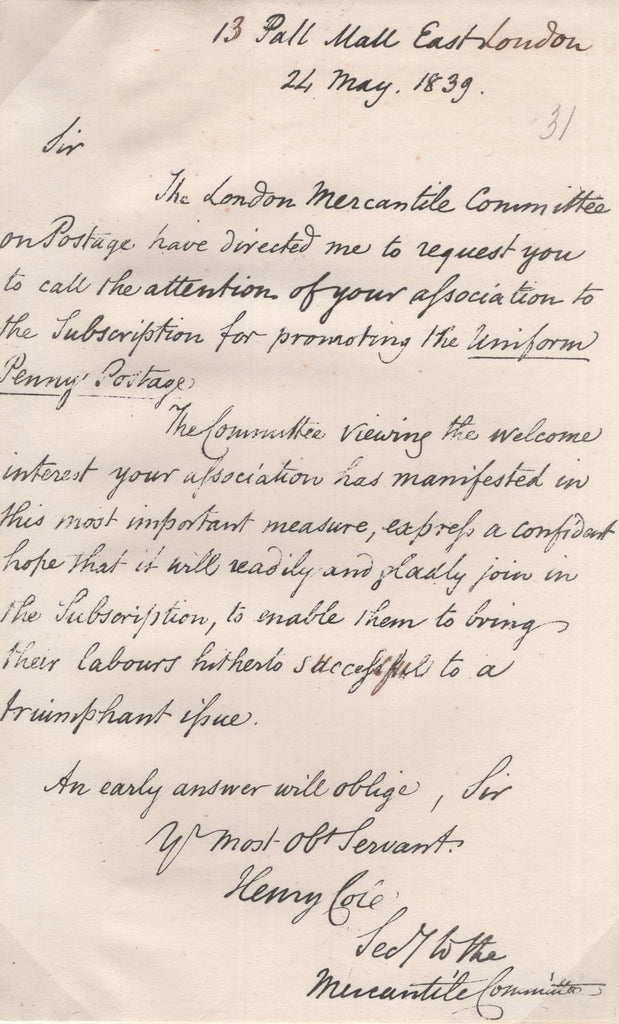 13 Pall Mall East London
24 May. 1839.
31
Sir
The London Mercantile Committee
on Postage have directed me to request you
to call the attention of your aſsociation to
the Subscription for promoting the Uniform
Penny Postage
The Committee viewing the welcome
interest your aſsociation has manifested in
this most important measure, expreſs a confident
hope that it will readily and gladly join in
the Subscription, to enable them to bring
their labours hitherto succeſsful to a
triumphant iſsue.
An early answer will oblige, Sir
Yr most obt Servant.
Henry Cole
Secy to the
Mercantile Committee